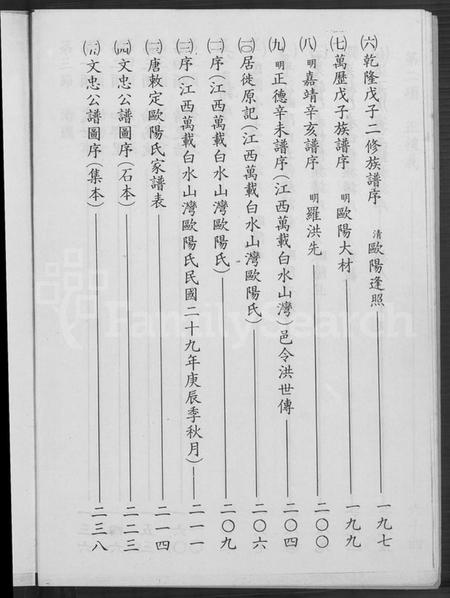 (六)乾隆戊子二修族譜序 清 歐陽逢照 一九七
(七)萬歷戊子族譜序 明 歐陽大材 一九九
(八)明嘉靖辛亥譜序 明 羅洪先 二〇〇
(九)明正德辛未譜序(江西萬載白水山灣)邑令洪世傳 二〇四
(一〇)居徙原記(江西萬載白水山灣歐陽氏) 二〇六
(一一)序(江西萬載白水山灣歐陽氏) 二〇九
(一二)序(江西萬載白水山灣歐陽氏民國二十九年庚辰季秋月) 二一一
(一三)唐敕定歐陽氏家譜表 二一四
(一四)文忠公譜圖序(石本) 二二三
(一五)文忠公譜圖序(集本) 二三八
FamilySearch